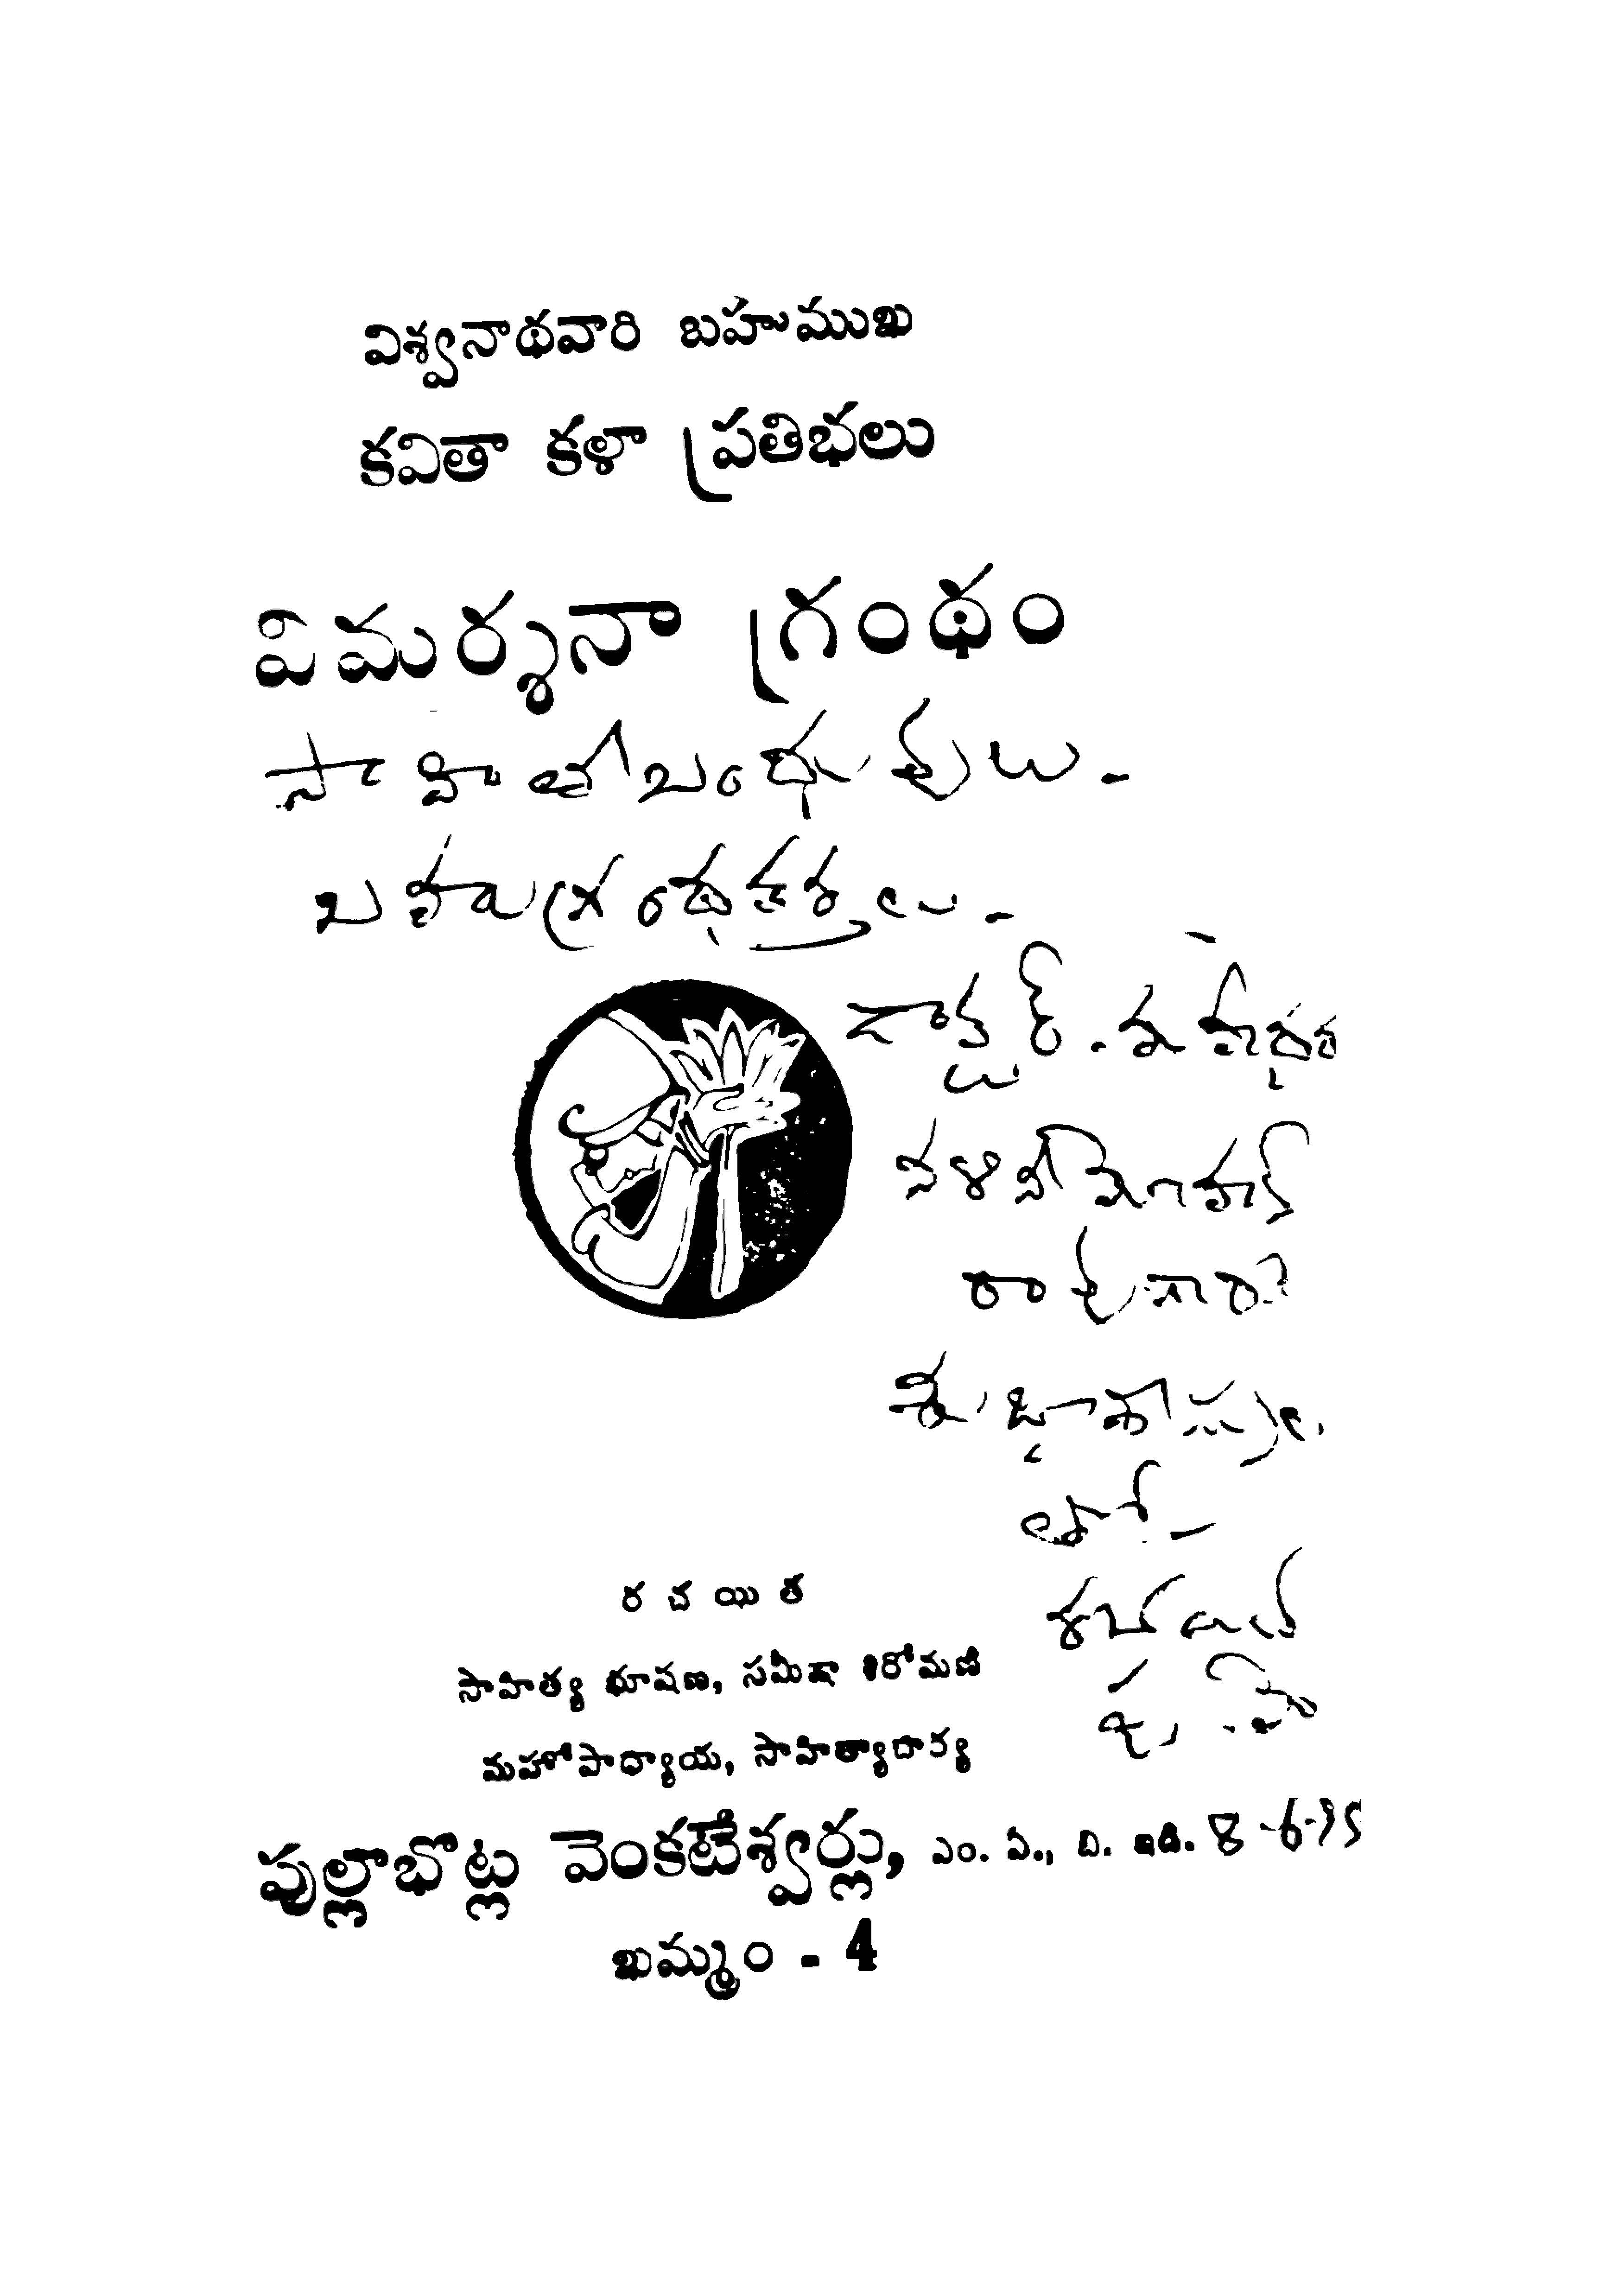 విశ్వనాథవారి బహుముఖ
కవితా కళా ప్రతిభలు
విమర్శనా గ్రంథం
సాహితీబంధువులు -
బహుగ్రంథకర్తలు -
డాక్టర్.
నళినీమోహన్
రావుగారికి
తో -
రచయిత
సాహిత్య భూషణ, సమీక్షా శిరోమణి
మహోపాధ్యాయ, సాహిత్యాచార్య
పుల్లాభొట్ల వెంకటేశ్వర్లు, ఎం. ఏ., బి. ఇడి. 8-6-75
ఖమ్మం - 4